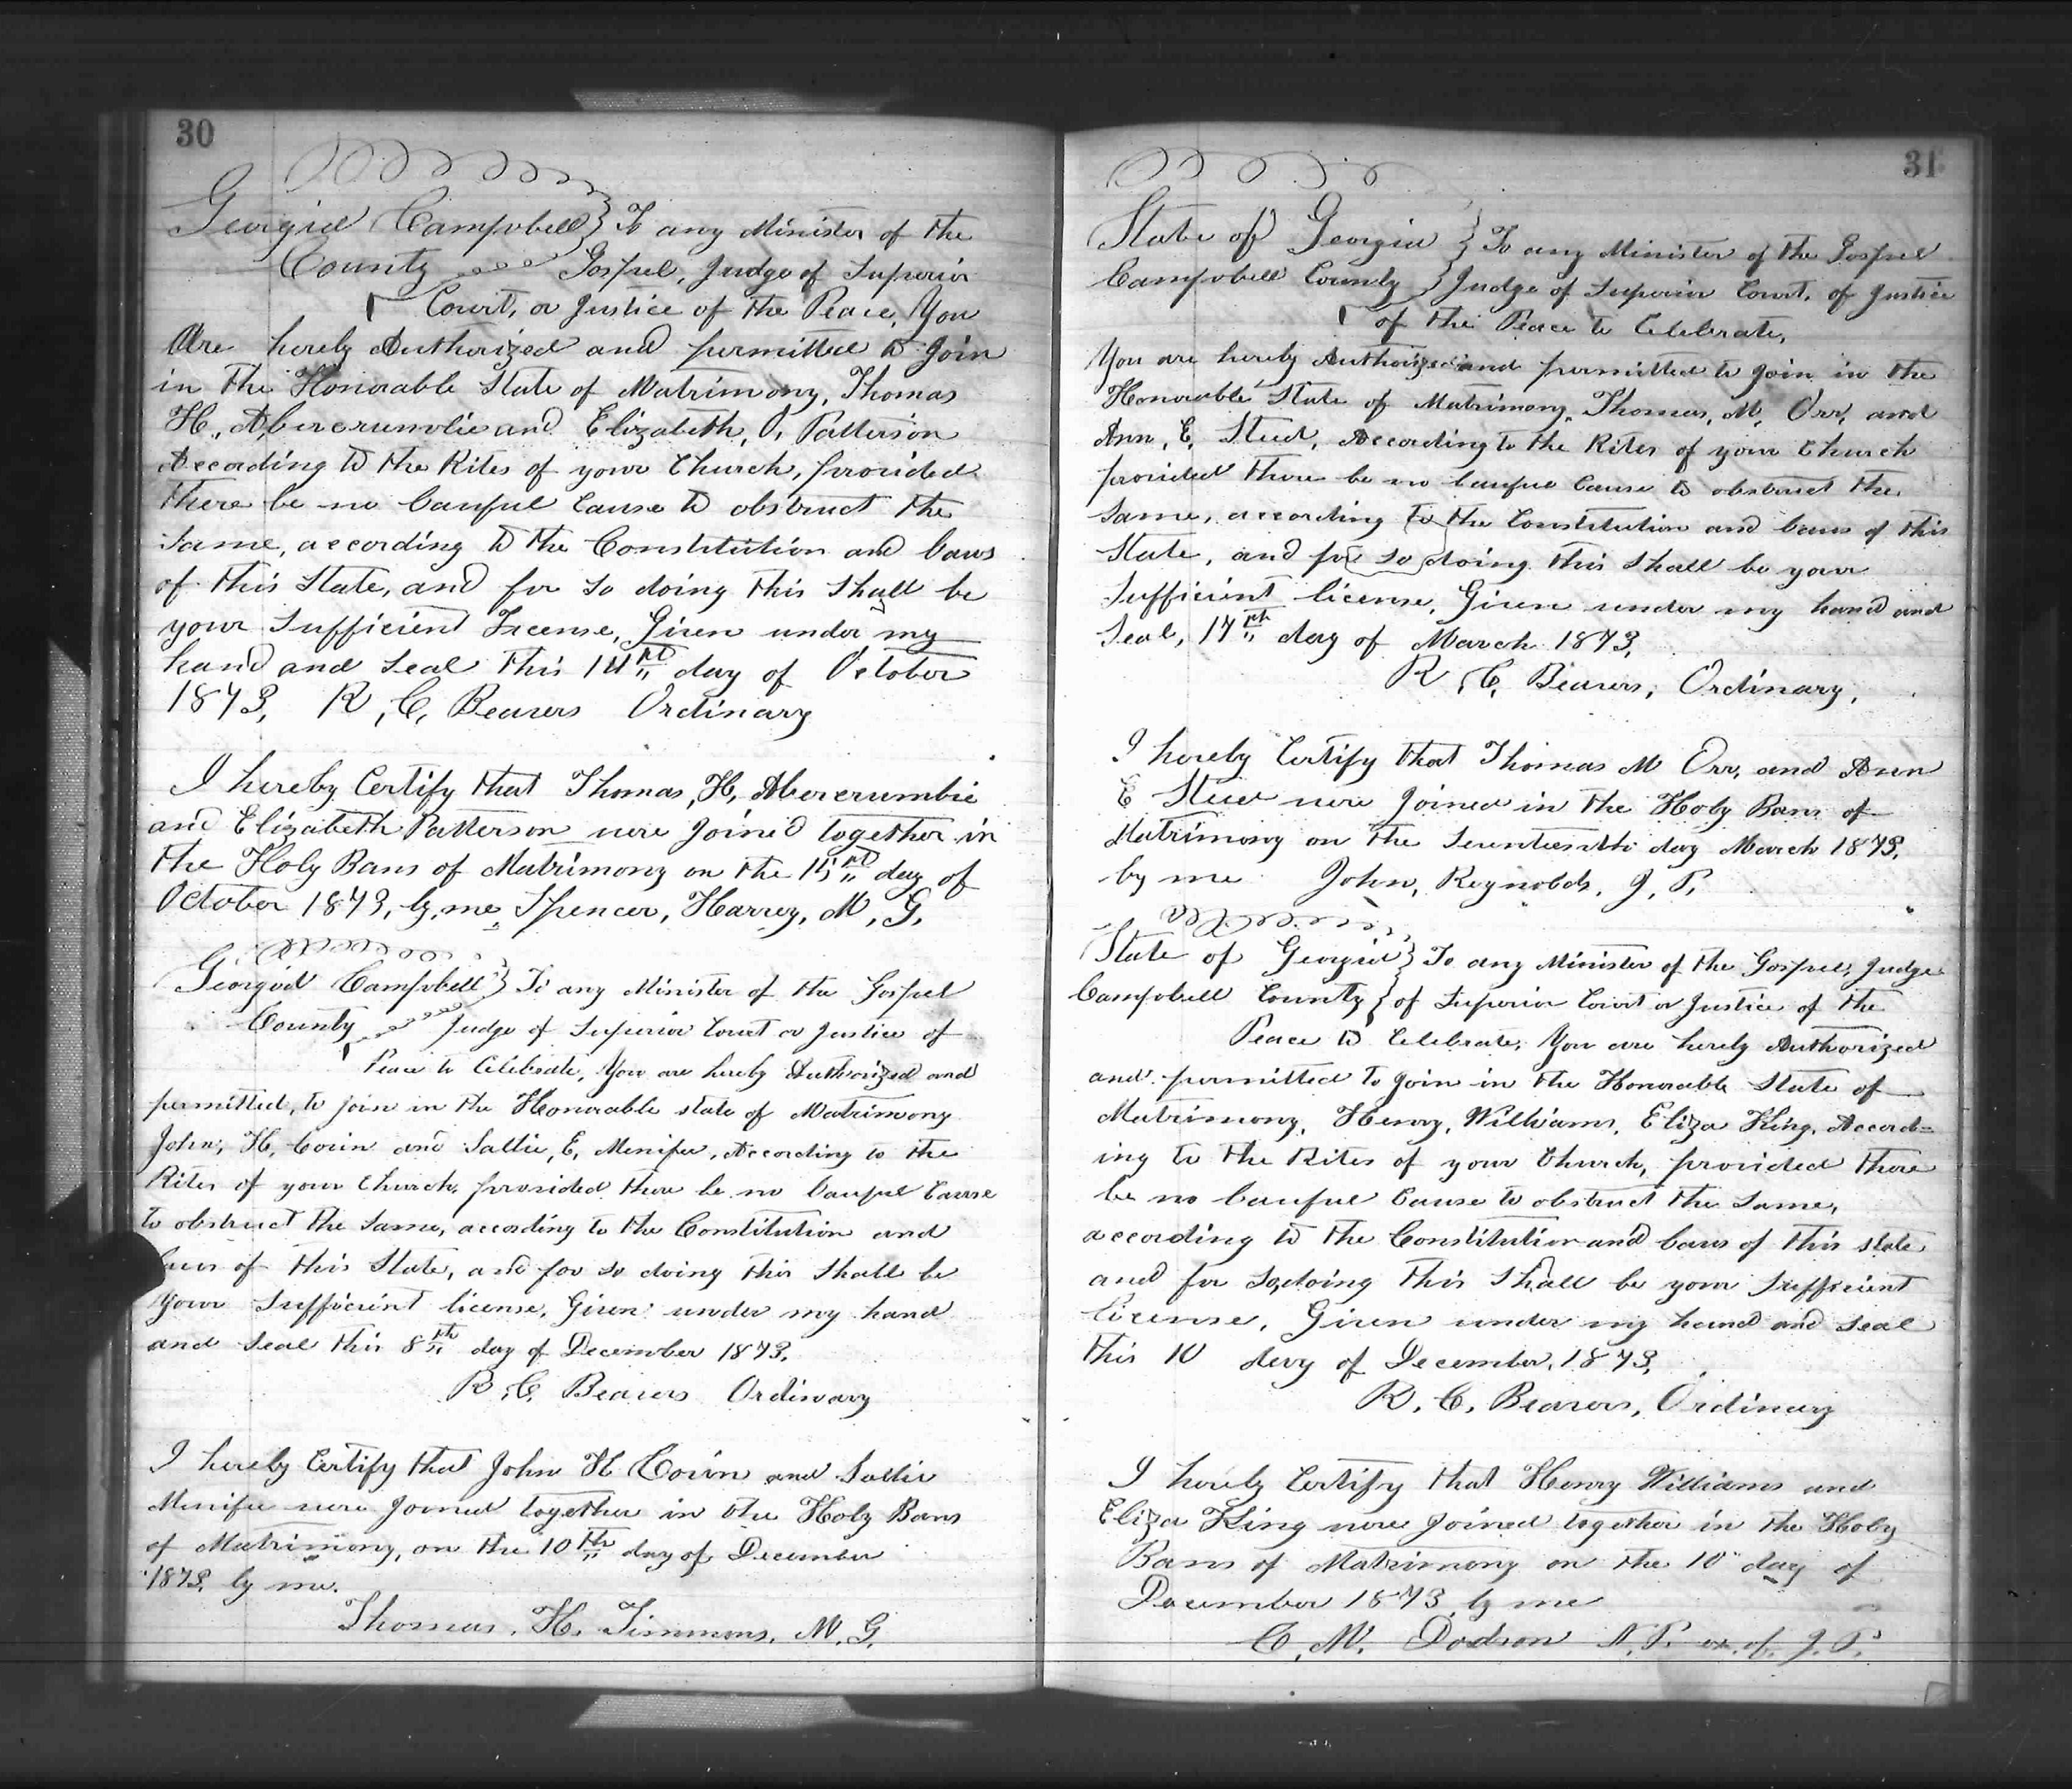 30
Georgia Campbell } To any Minister of the
County Gospel, Judge of Superior
Court, or Justice of the Peace, You
Are hereby Authorized and permitted to join
in the Honorable State of Matrimony, Thomas
H, Abercrumbie and Elizabeth, P, Patterson
According to the Rites of your Church, provided
there be no lawful Cause to obstruct the
Same, according to the Constitution and laws
of this State, and for so doing this Shall be
your Sufficient License, Given under my
hand and Seal this 14th day of October
1873, R, C, Beavers Ordinary
I hereby Certify that Thomas, H, Abercrumbie
and Elizabeth Patterson were joined together in
the Holy Bans of Matrimony on the 15th day of
October 1873, by me Spencer, Harvey, M, G,
Georgia Campbell } To any Minister of the Gospel
County Judge of Superior Court or Justice of
Peace to Celebrate, You are hereby Authorized and
permitted, to join in the Honorable state of Matrimony
John, H, and Sallie, E, Menifee, According to the
Rites of your Church, provided there be no lawful Cause
to obstruct the Same, according to the Constitution and
laws of this State, and for so doing this Shall be
Your Sufficient license, Given under my hand
and Seal this 8th day of December 1873,
R, C, Beavers Ordinary
I hereby Certify that John H and Sallie
Menifee were joined together in the Holy Bans
of Matrimony, on the 10th day of December
1873, by me.
Thomas, H. Timmons, M. G.
31
State of Georgia } To any Minister of the Gospel
Campbell County } Judge of Superior Court, of Justice
of the Peace to Celebrate,
You are hereby Authorized and permitted to join in the
Honorable State of Matrimony, Thomas, M, Orr, and
Ann, E, Steed, According to the Rites of your Church
provided there be no lawful Cause to obstruct the
Same, according to the Constitution and laws of this
State, and for so doing this Shall be your
Sufficient license, Given under my hand and
Seal, 17th day of March 1873,
R, C, Beavers, Ordinary,
I hereby Certify that Thomas M Orr, and Ann
E Steed were joined in the Holy Bans of
Matrimony on the Seventeenth day March 1873,
by me John, Reynolds, J, P,
State of Georgia } To any Minister of the Gospel, Judge
Campbell County } of Superior Court or Justice of the
Peace to Celebrate, You are hereby Authorized
and permitted to join in the Honorable State of
Matrimony, Henry, Williams, Eliza King, Accord=
ing to the Rites of your Church, provided there
be no lawful Cause to obstruct the Same,
according to the Constitution and laws of this state
and for so, doing this Shall be your Sufficient
license, Given under my hand and Seal
this 10 day of December, 1873,
R. C, Beavers, Ordinary
I hereby Certify that Henry Williams and
Eliza King were joined together in the Holy
Bans of Matrimony on the 10" day of
December 1873 by me
C, M, Dodson N. P. ex. of. J. P.